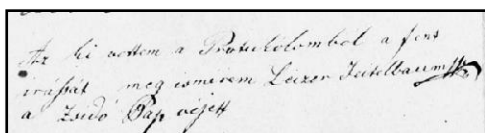 Az ki vettem a Protukolombol a fent
irását meg ismérem Leizer Teitelbaum
a Zsidó Pap